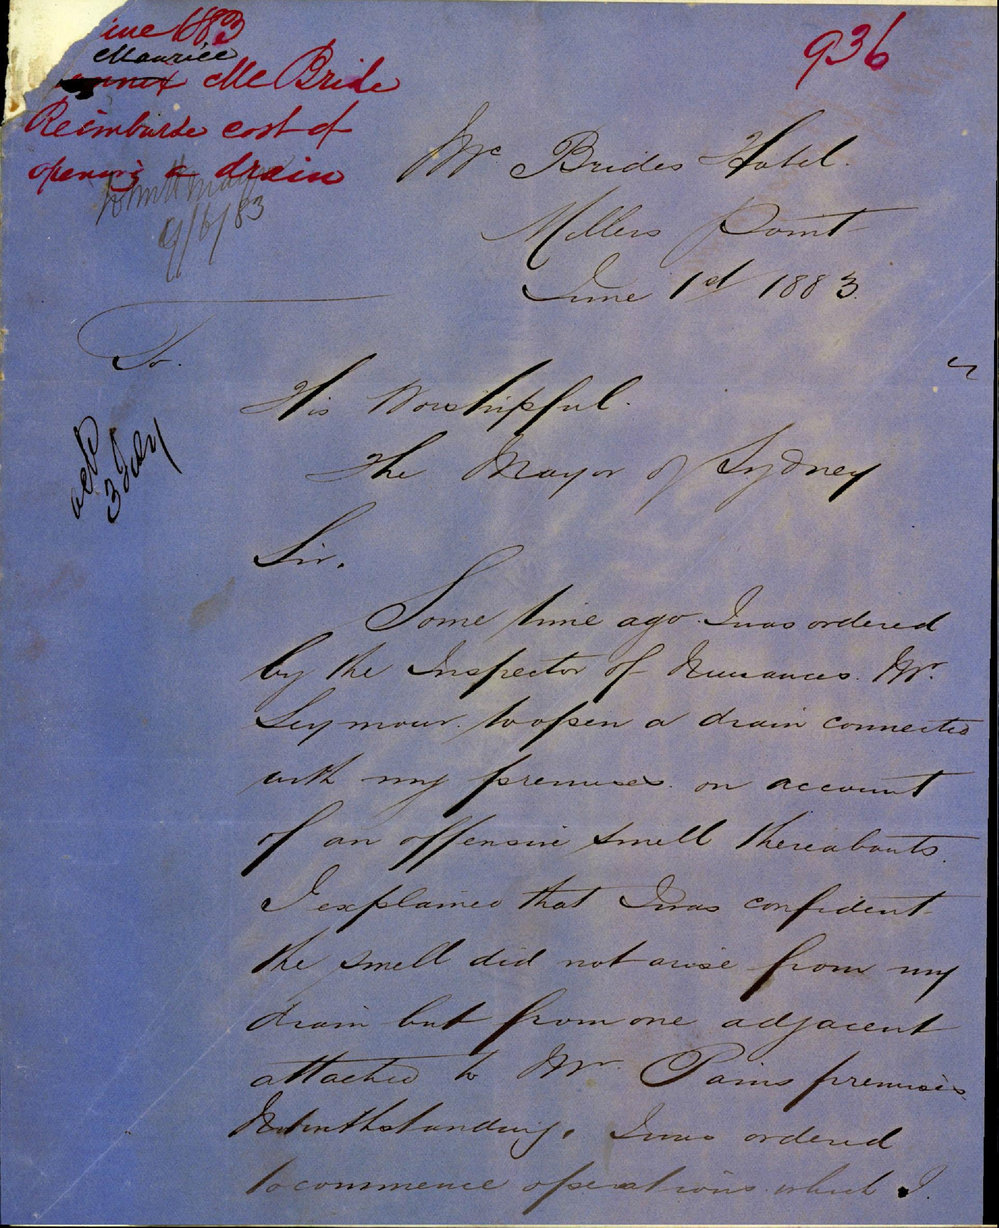 936
June 1883
Maurice
McBride
Reimburse cost of
opening a drain
9/6/83
McBrides Hotel.
Millers Point
June 1st 1883.
To.
His Worshipful.
The Mayor of Sydney
Sir.
Some time ago I was ordered
by the Inspector of Nuisances. Mr.
Seymour, to open a drain connected
with my premises on account
of an offensive smell thereabouts.
I explained that I was confident
the smell did not arise from my
drain but from one adjacent
attached to Mr. Pains premises.
Notwithstanding, I was ordered
to commence operations which I.